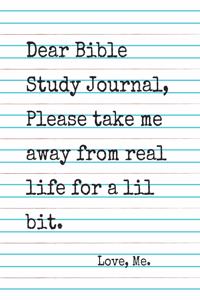 Dear Bible
Study Journal,
Please take me
away from real
life for a lil
bit.
Love, Me.